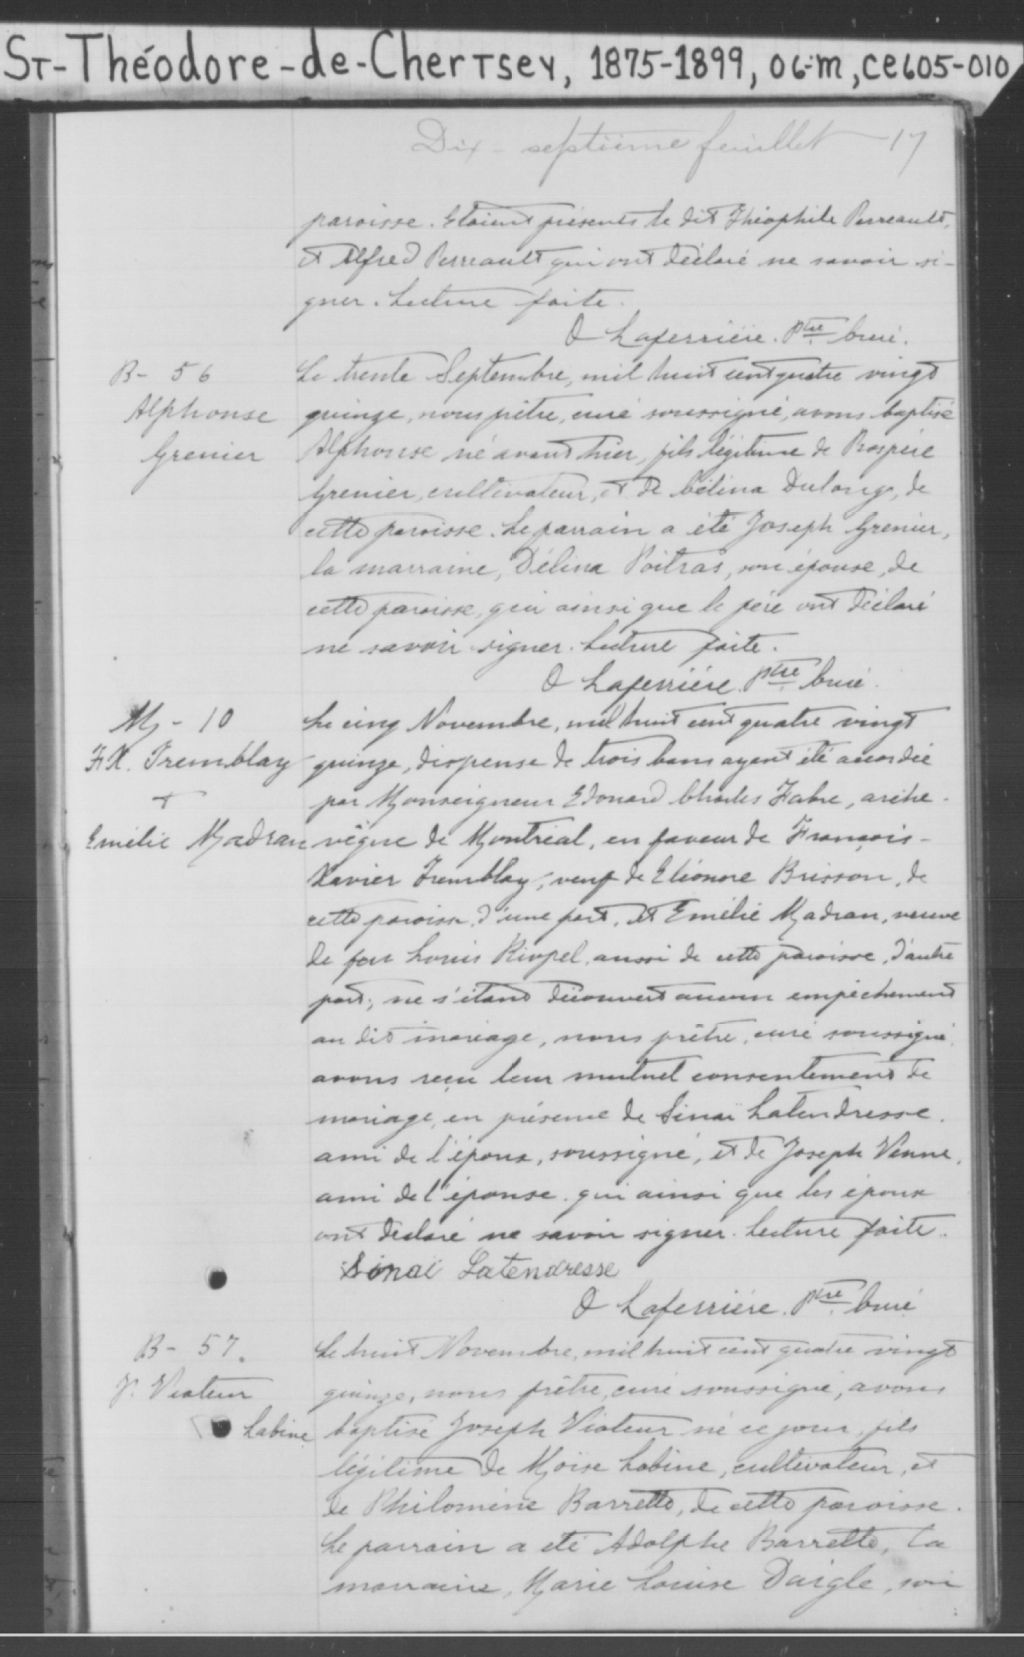 St-Théodore-de-Chertsey, 1875-1899, 06-M, CE605-010
Dix-septième feuillet 17
paroisse. Etaient présents le dit Théophile Perreault,
et Alfred Perreault qui ont déclaré ne savoir si-
gner. Lecture faite.
O Laferrière. Ptre Curé.
B- 56
Alphonse
Grenier
Le trente Septembre, mil huit cent quatre vingt
quinze, nous prêtre, curé soussigné, avons baptisé
Alphonse né avant hier, fils légitime de Prospère
Grenier, cultivateur, et de Célina Dulong, de
cette paroisse. Le parrain a été Joseph Grenier,
la marraine, Délina Poitras, son épouse, de
cette paroisse, qui ainsi que le père ont déclaré
ne savoir signer. Lecture faite.
O Laferrière. Ptre Curé.
M- 10
F.X. Tremblay
+
Emélie Madran
Le cinq Novembre, mil huit cent quatre vingt
quinze, dispense de trois bans ayant été accordée
par Monseigneur Edouard Charles Fabre, arche-
vêque de Montréal, en faveur de François-
Xavier Tremblay, veuf de Eléonore Brisson, de
cette paroisse d'une part, et Emélie Madran, veuve
de feu Louis Riopel, aussi de cette paroisse, d'autre
part; ne s'étant découvert aucun empêchement
au dit mariage, nous prêtre, curé soussigné,
avons reçu leur mutuel consentement de
mariage, en présence de Sinaï Latendresse,
ami de l'époux, soussigné, et de Joseph Venne,
ami de l'épouse qui ainsi que les époux
ont déclaré ne savoir signer. Lecture faite.
Sinaï Latendresse
O Laferrière. Ptre Curé
B- 57.
J. Viateur
Labine
Le huit Novembre, mil huit cent quatre vingt
quinze, nous prêtre, curé soussigné, avons
baptisé Joseph Viateur né ce jour, fils
légitime de Moïse Labine, cultivateur, et
de Philomène Barrette, de cette paroisse.
Le parrain a été Adolphe Barrette, la
marraine, Marie Louise Daigle, son